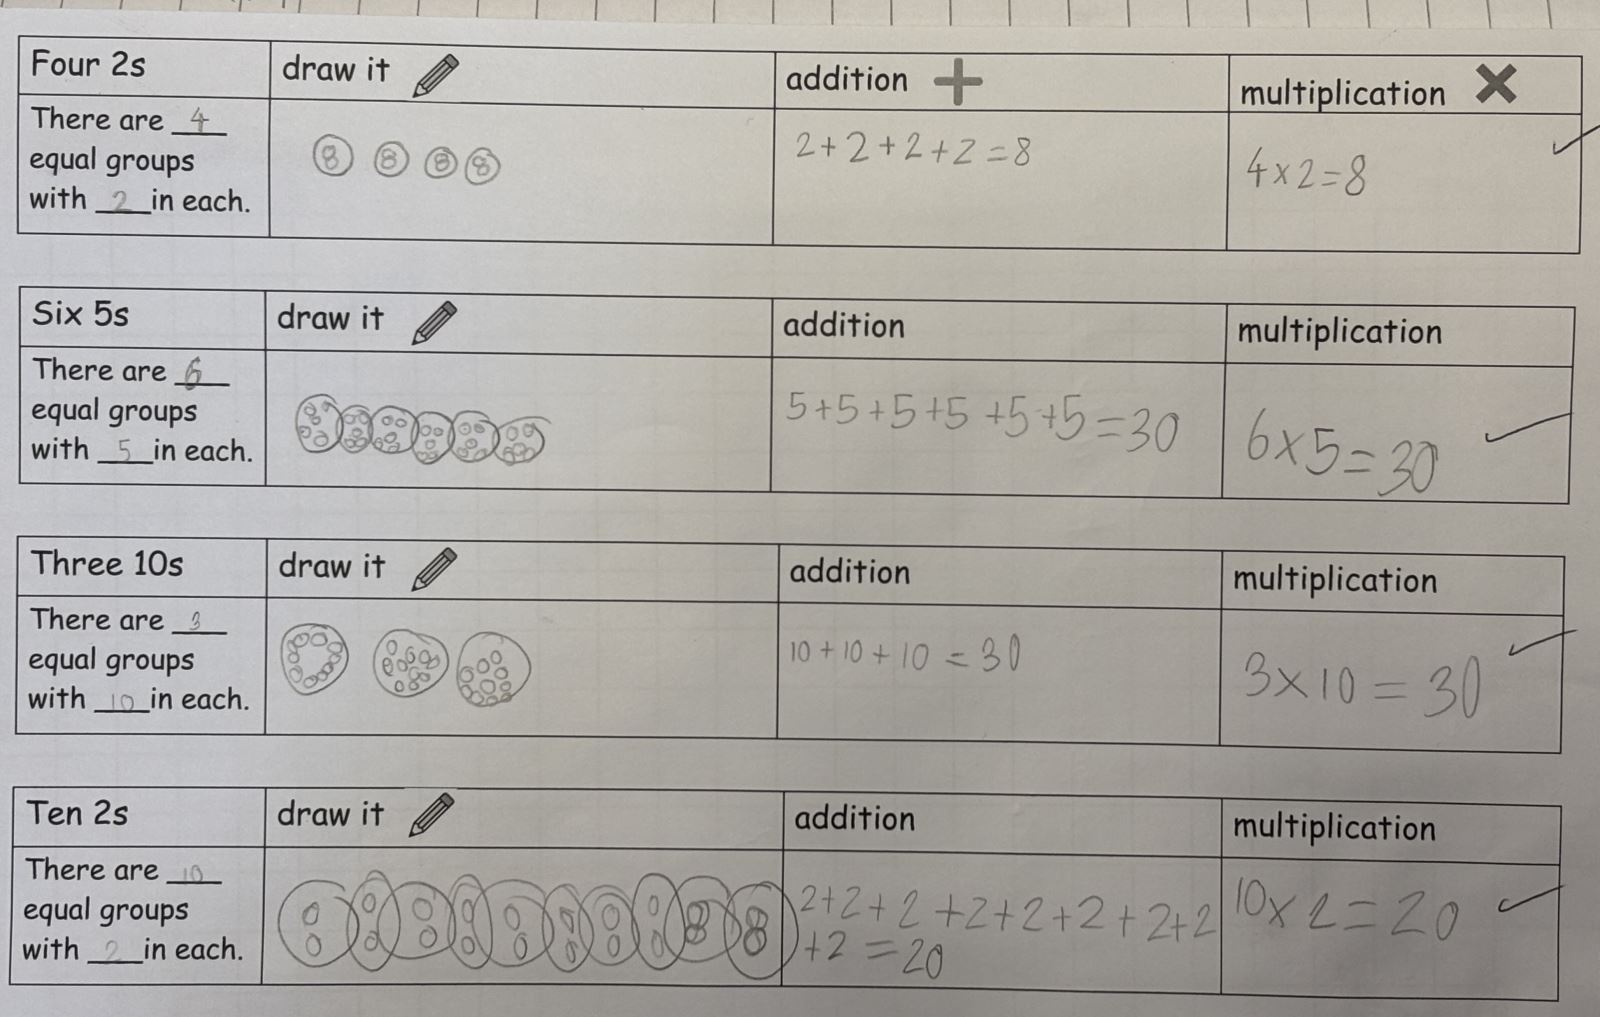 Four 2s
draw it
addition +
multiplication ×
There are 4
equal groups
with 2 in each.
2+2+2+2=8
4×2=8
Six 5s
draw it
addition
multiplication
There are 6
equal groups
with 5 in each.
5+5+5+5+5+5=30
6×5=30
Three 10s
draw it
addition
multiplication
There are 3
equal groups
with 10 in each.
10+10+10=30
3×10=30
Ten 2s
draw it
addition
multiplication
There are 10
equal groups
with 2 in each.
2+2+2+2+2+2+2+2
+2=20
10×2=20